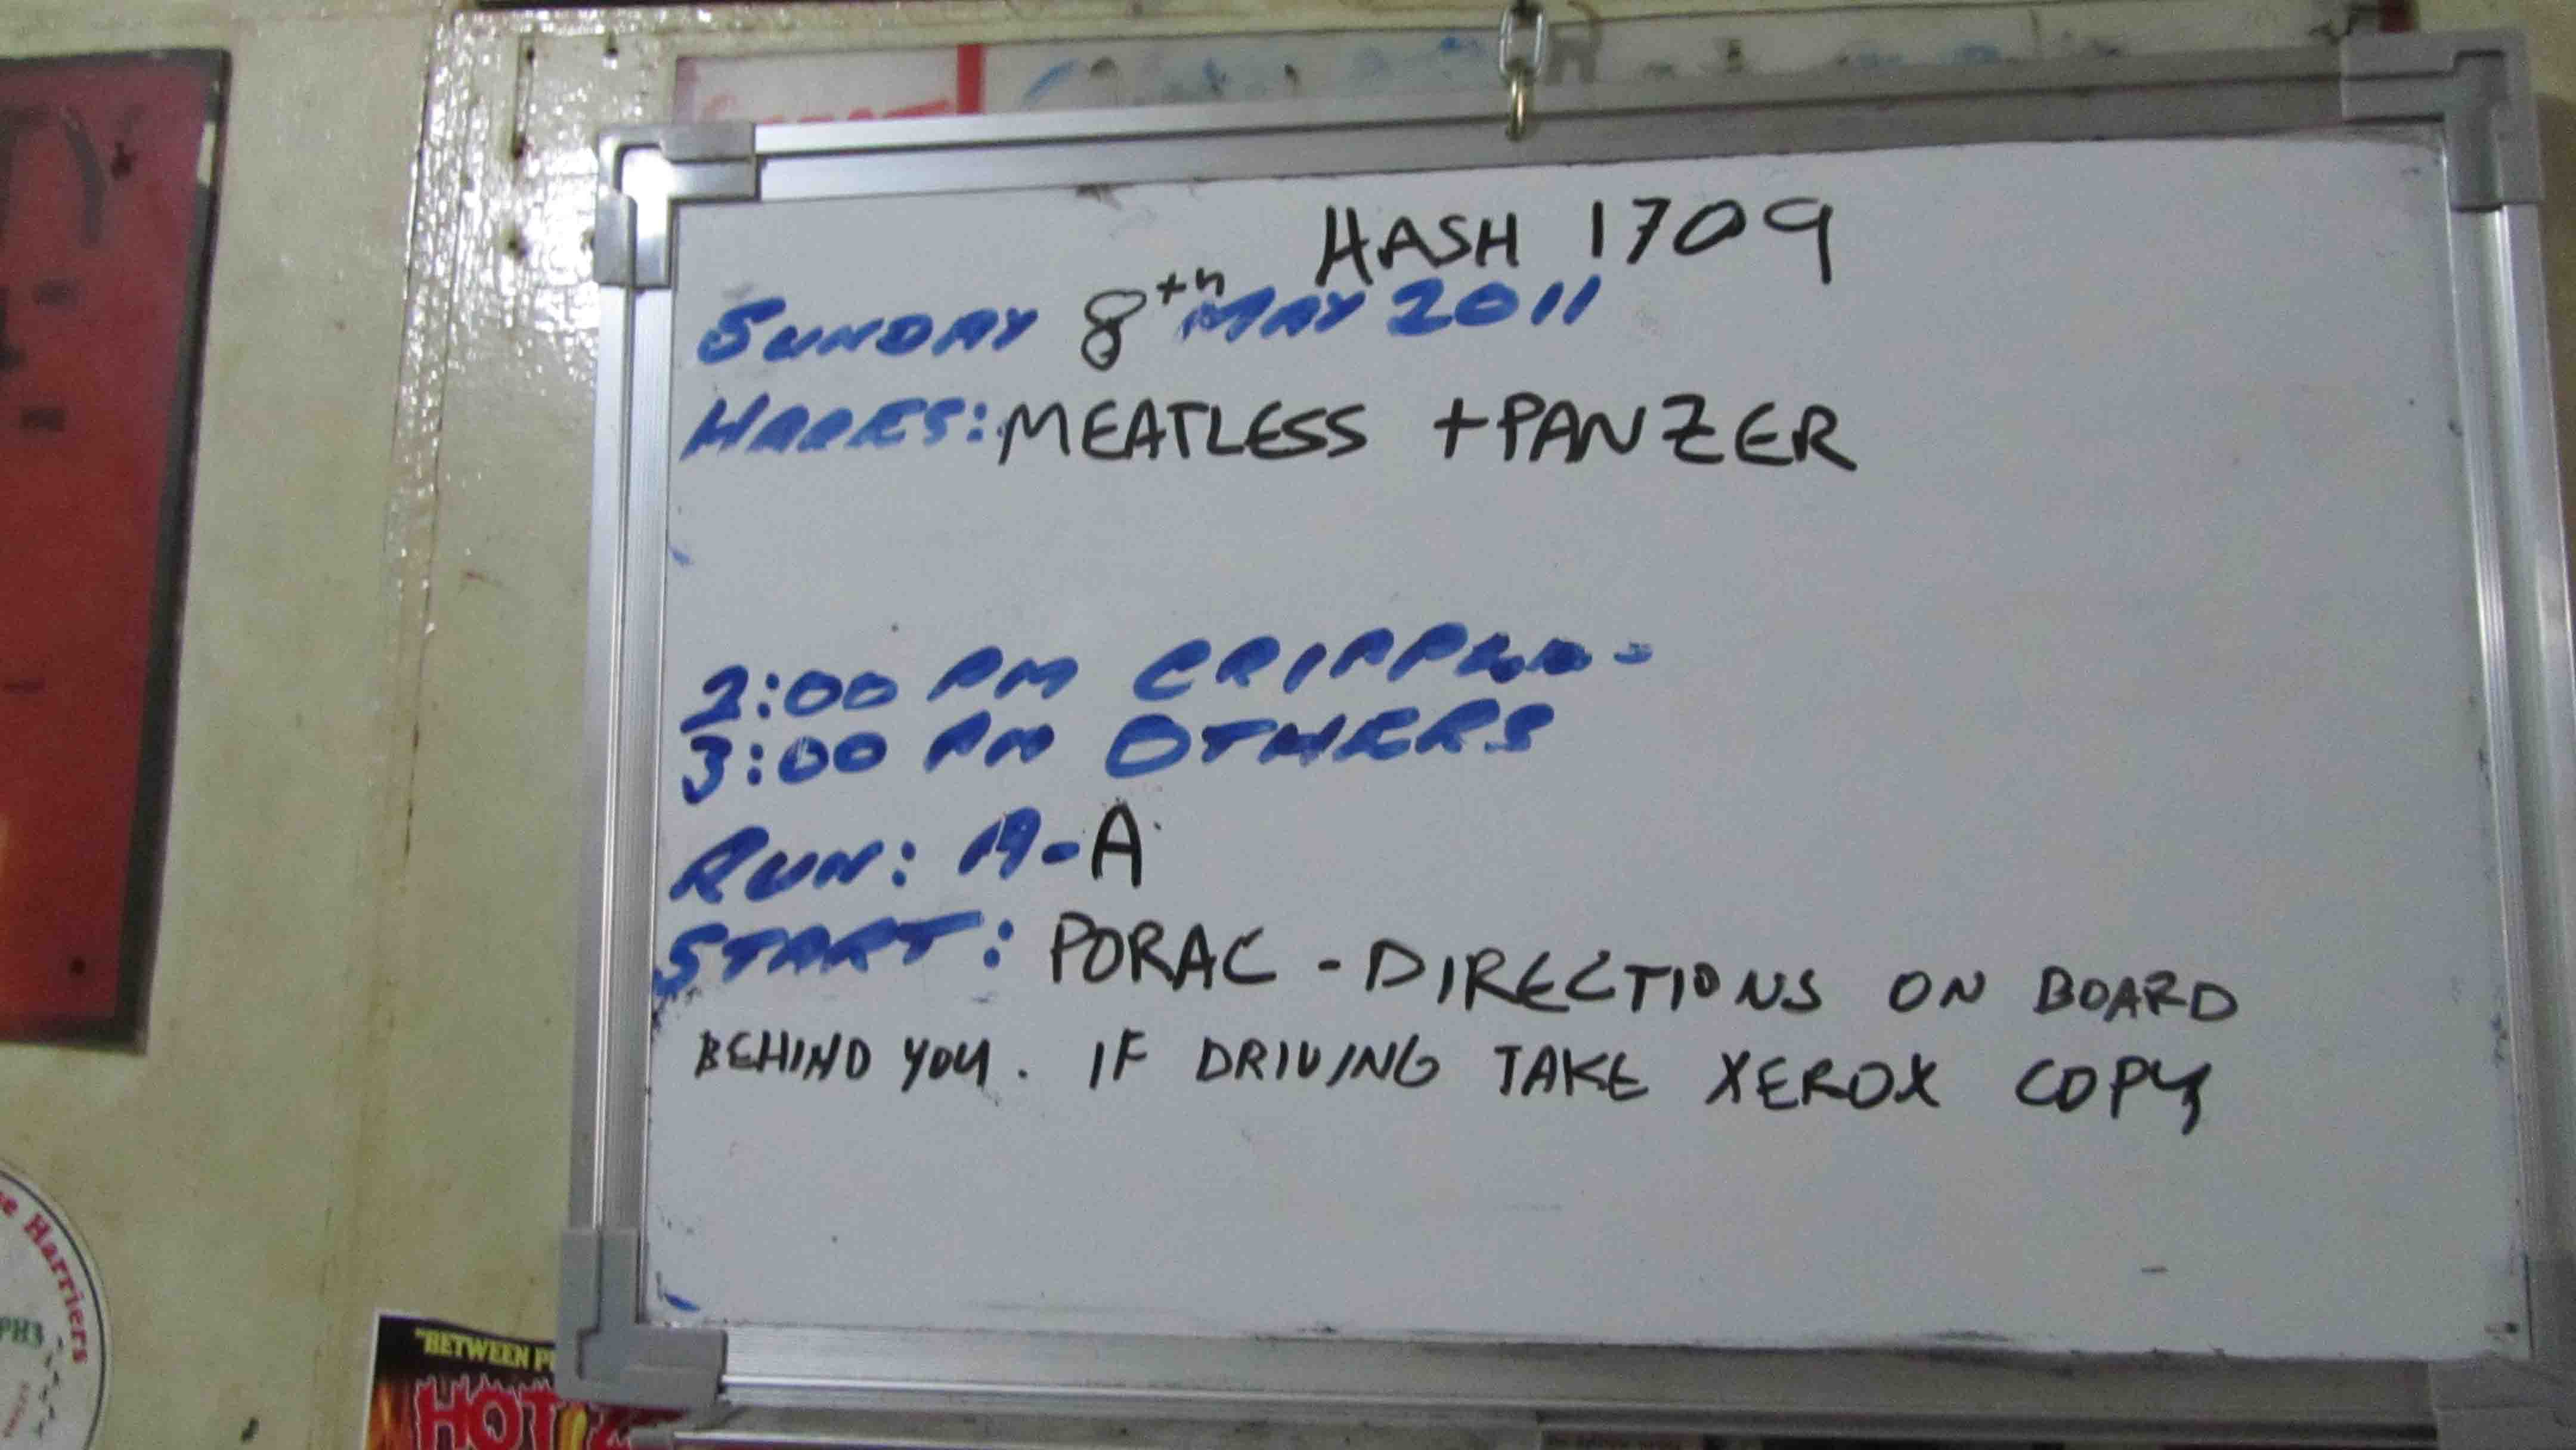 HASH 1709
SUNDAY 8th MAY 2011
HARES: MEATLESS + PANZER
2:00 PM
3:00 PM OTHERS
RUN: A-A
START: PORAC - DIRECTIONS ON BOARD
BEHIND YOU. IF DRIVING TAKE XEROX COPY
Harriers
PH3
"BETWEEN
HOT